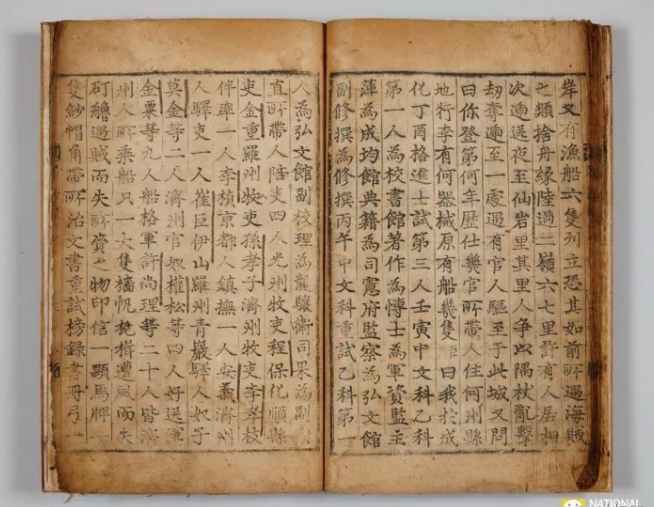 岸又有漁船六隻列立恐其如前所遇海賊
之類捨舟緣陸過二嶺六七里許有人居相
次遞送夜至仙岩里其里人爭以隅杖亂擊
劫奪遞至一處遇有官人驅至于此城又問
曰你登第何年歷仕幾官所帶人住何州縣
地行李有何器械原有船幾隻臣曰我於成
化丁酉格進士試第三人壬寅中文科乙科
第一人為校書館著作為博士為軍資監主
薄為成均館典籍為司憲府監察為弘文館
副修撰為修撰丙午中文科重試乙科第一
人為弘文館副校理為龍驤衛司果為副
直所帶人陪吏四人光州牧吏程保化順縣
吏金重羅州牧吏孫孝子濟州牧吏李孝枝
伴率一人李楨京都人鎮撫一人安義濟州
人驛吏一人崔巨伊山羅州青巖驛人奴子
莫金等二人濟州官奴權松等四人好送軍
金粟等九人船格軍許尚理等二十人皆濟
州人所乘船只一大隻檣帆桅楫遭風而失
矴艫遇賊而失所賫之物印信一顆馬牌一
隻紗帽角帶所治文書重試榜錄書冊弓一
NATIONAL